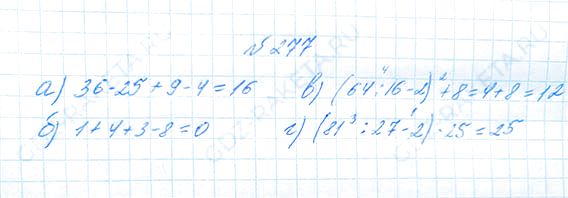 № 277
а) 36-25+9-4=16 в) (64⁴:16-2)²+8=4+8=12
б) 1+4+3-8=0 г) (81³:27-2)¹·25=25
GDZ-RAKETA.RU